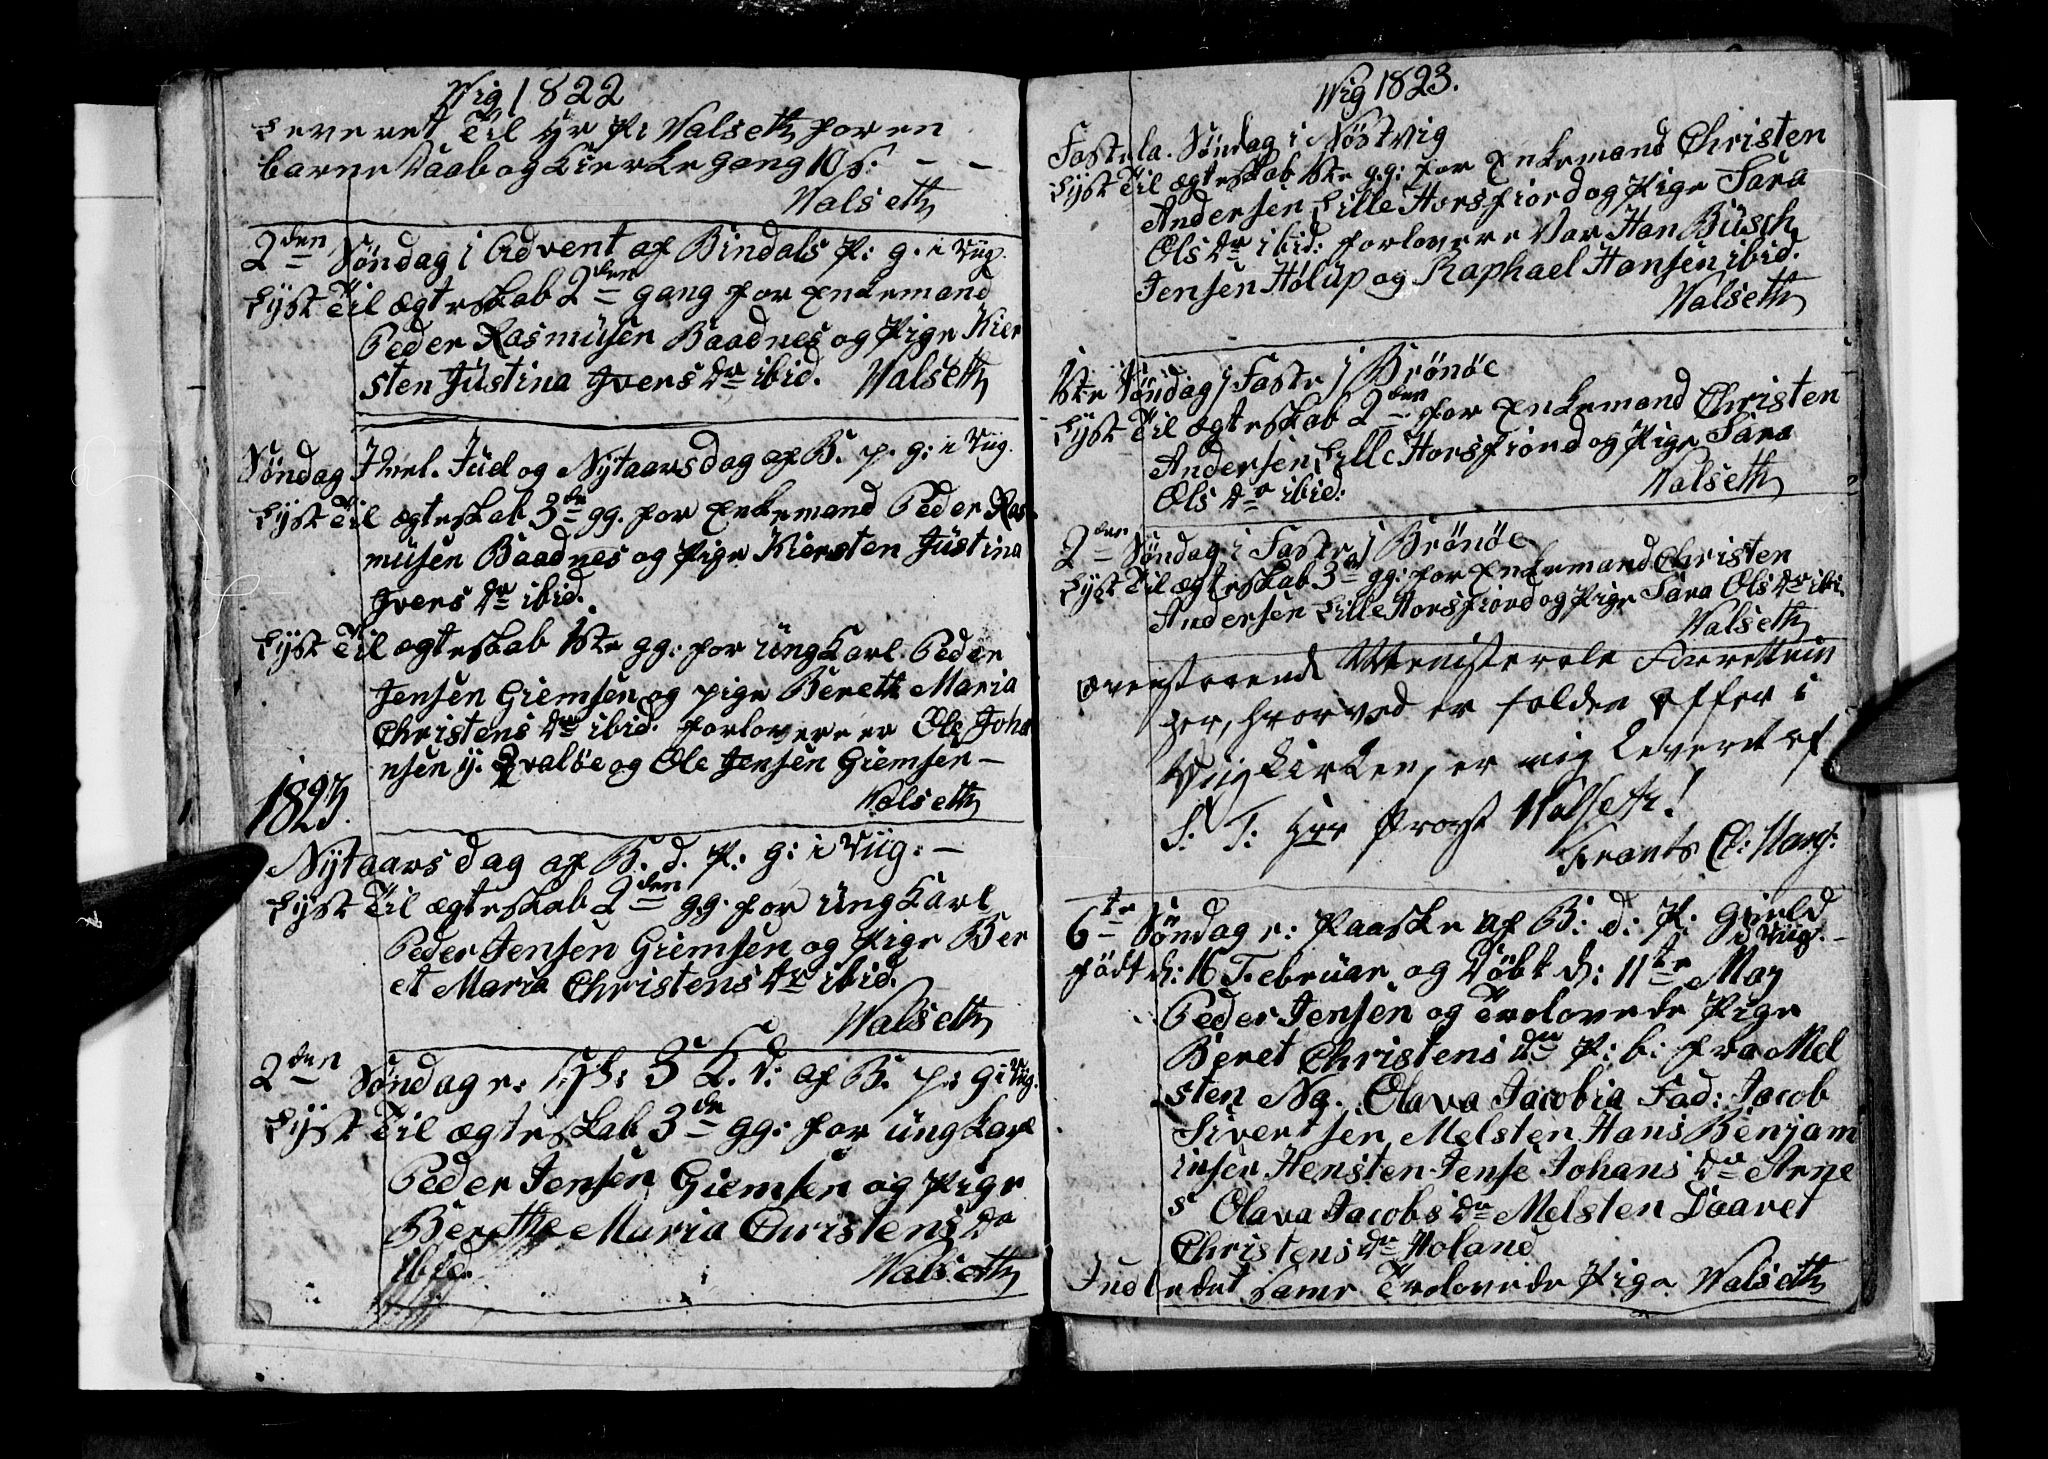 Wig 1822
Leveret Til Hr P: Valseth for en
barne Daab og Kierkegang 10 s. - -
Valseth
2den Søndag i Advent af Bindals P: g. i Viig.
Lyst Til ægteskab 2den gang for Enkemand
Peder Rasmusen Baadnes og Pige Kier
sten Justina Ivers Dr ibid. Valseth
Søndag Imel. Juel og Nytaarsdag af B. p. g: i Viig.
Lyst Til ægteskab 3die gg. for Enkemand Peder Ras
musen Baadnes og Pige Kiersten Justina
Ivers Dr ibid.
Lyst Til ægteskab 1ste gg: for ungkarl Peder
Jensen Giemsen og pige Bereth Maria
Christens Dr ibid. forlovere er Ole Joha
nsen y. Qvaløe og Ole Jensen Giemsen -
Valseth
1823.
Nytaarsdag af B. d. P: g: i Viig: -
Lyst Til ægteskab 2den gg. for ungkarl
Peder Jensen Giemsen og Pige Ber
et Maria Christens Dr ibid.
Valseth
2den Søndag e: H: 3 K. d: af B. p: g: i Viig.
Lyst Til ægteskab 3die gg: for ungkarl
Peder Jensen Giemsen og Pige
Berethe Maria Christens Dr
ibid. Valseth
Wig 1823.
Fastela. Søndag i Nøstvig
Lyst Til ægteskab 1ste gg: for Enkemand Christen
Andersen Lille Horsfiord og Pige Sara
Ols Dr ibid: forlovere Var Han Busch
Jensen Holup og Raphael Hansen ibid.
Valseth
1ste Søndag i Faste i Brønøe
Lyst Til ægteskab 2den for Enkemand Christen
Andersen Lille Horsfiord og Pige Sara
Ols Dr ibid: Valseth
2den Søndag i Faste i Brønøe
Lyst Til ægteskab 3die gg: for Enkemand Christen
Andersen Lille Horsfiord og Pige Sara Ols Dr ibi.
Valseth
Ovenstaaende Ministeriale Forrettnin
ger, hvorved er falden Offer i
Viig Kirken, er mig leveret af
S. T. Herr Provst Valseth!
6te Søndag e: Paaske af B: d: P: Gield
i Viig. -
født d: 16 Februar og Døbt d: 11te May
Peder Jensen og Trolovede Pige
Beret Christens Dr P: b: fra Mel
sten Na. Olava Jacobia Fad: Jacob
Sivertsen Melsten Hans Benjam
insen Hensten Jense Johans Dr Arne
s Olava Jacobs Dr Melsten Daaret
Christens Dr Holand
Indledet Same Trolovede Pige Valseth